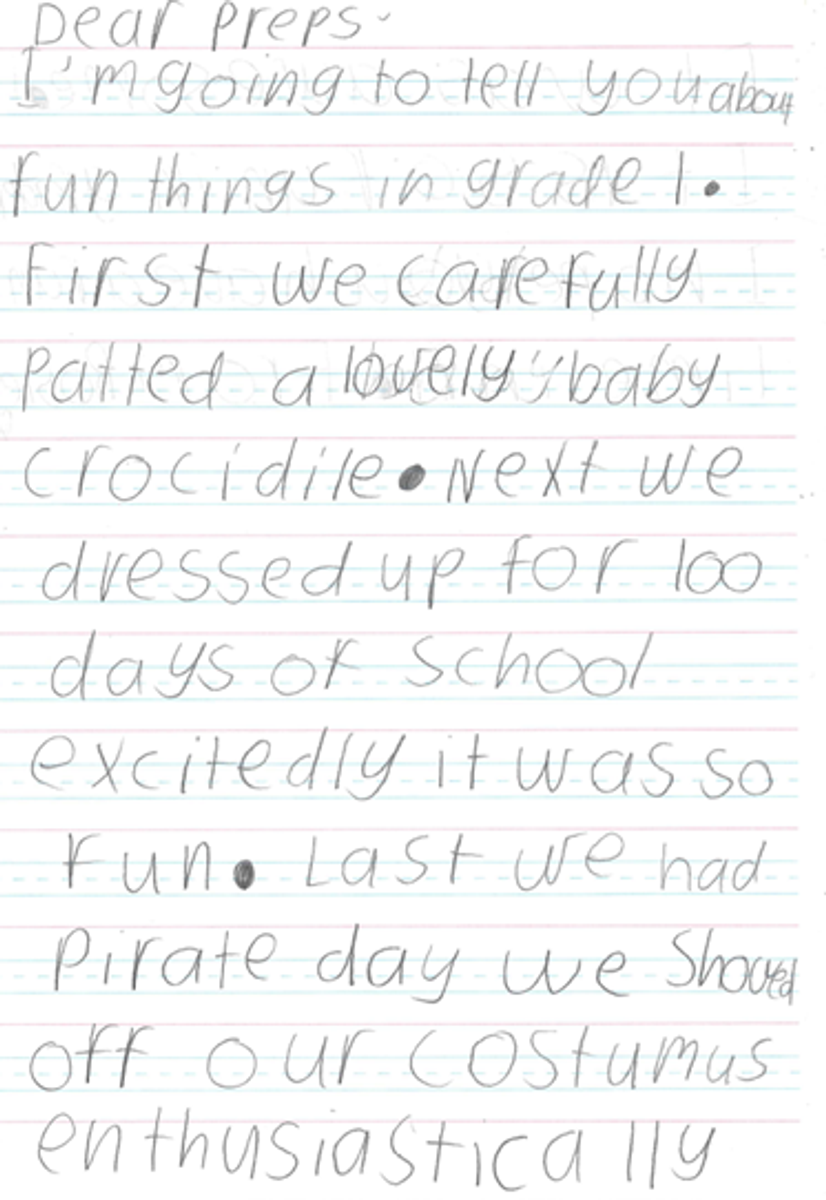 Dear Preps
I'm going to tell you about
fun things in grade 1.
First we carefully
patted a lovely baby
crocidile. Next we
dressed up for 100
days of school
excitedly it was so
fun. Last we had
Pirate day we Showed
off our costumus
enthusiastically